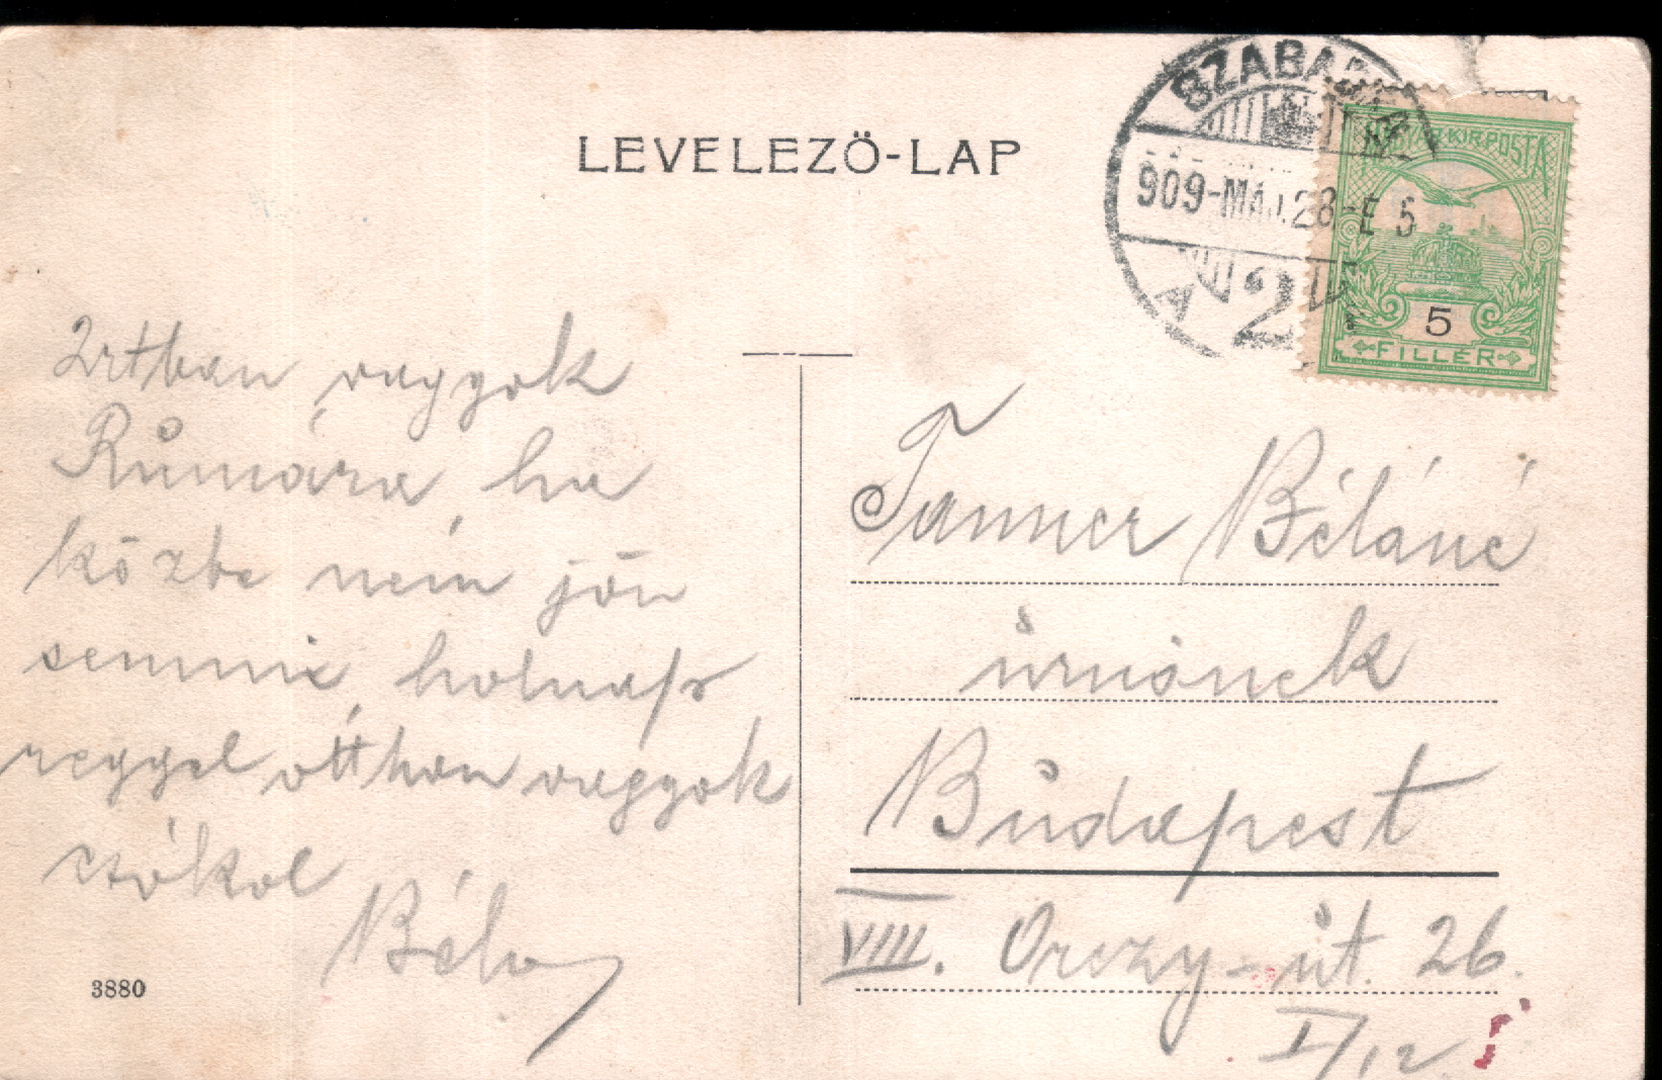 LEVELEZŐ-LAP
SZABADKA
909-MÁJ.28-E 5
A 2
MAGYAR KIR. POSTA
5
FILLÉR
vagyok
Rumára, ha
közbe nem jön
semmi, holnap
reggel otthon vagyok
csókol
Béla
3880
Tanner Béláné
úrnőnek
Budapest
VIII. Orczy-út. 26.
I/12